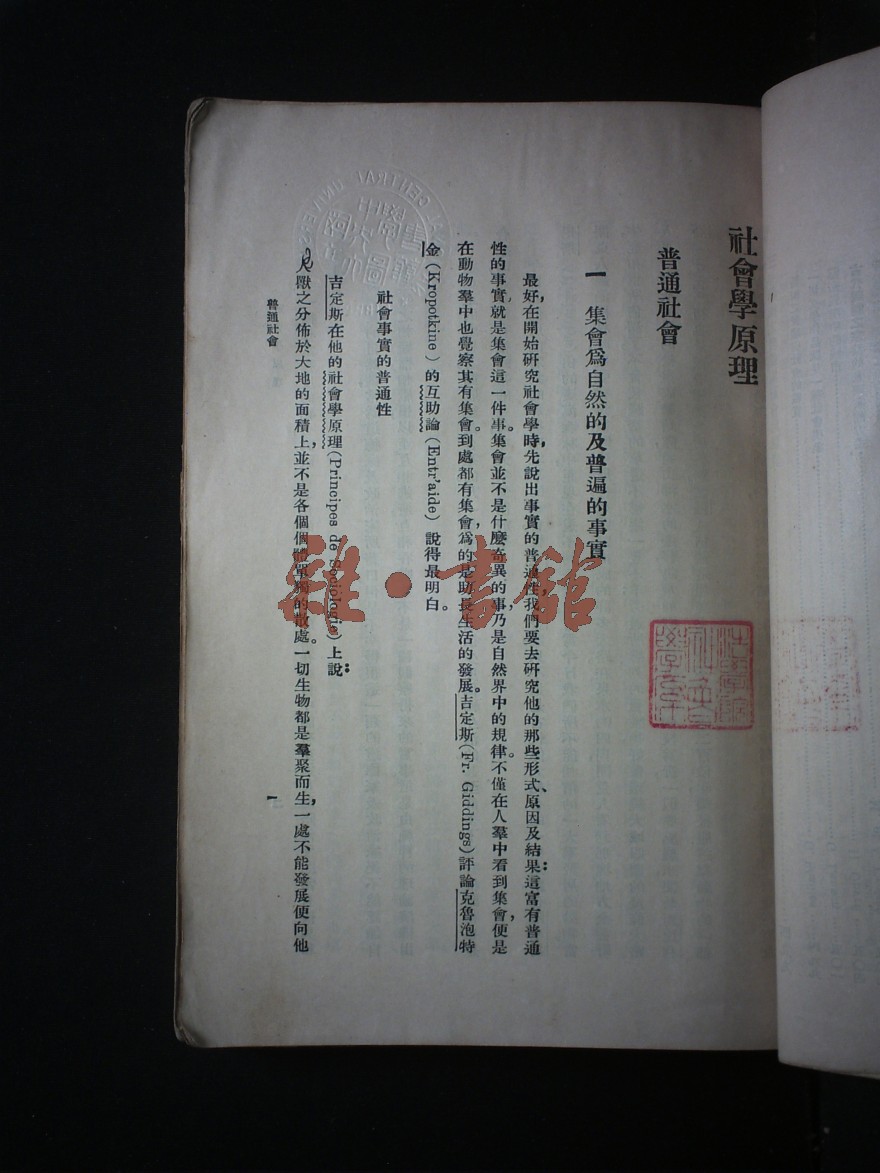 社會學原理
普通社會
一　集會爲自然的及普遍的事實
最好，在開始研究社會學時，先說出事實的普通性，我們要去研究他的那些形式、原因及結果：這富有普通
性的事實，就是集會這一件事。集會並不是什麼奇異的事，乃是自然界中的規律。不僅在人羣中看到集會，便是
在動物羣中也覺察其有集會。到處都有集會，爲的是助長生活的發展。吉定斯(Fr. Giddings)評論克魯泡特
金(Kropotkine)的互助論(Entr'aide)說得最明白。
社會事實的普通性
吉定斯在他的社會學原理(Principes de Sociologie)上說：
獸之分佈於大地的面積上，並不是各個個體單獨的散處。一切生物都是羣聚而生，一處不能發展便向他
普通社會
一
雜·書館